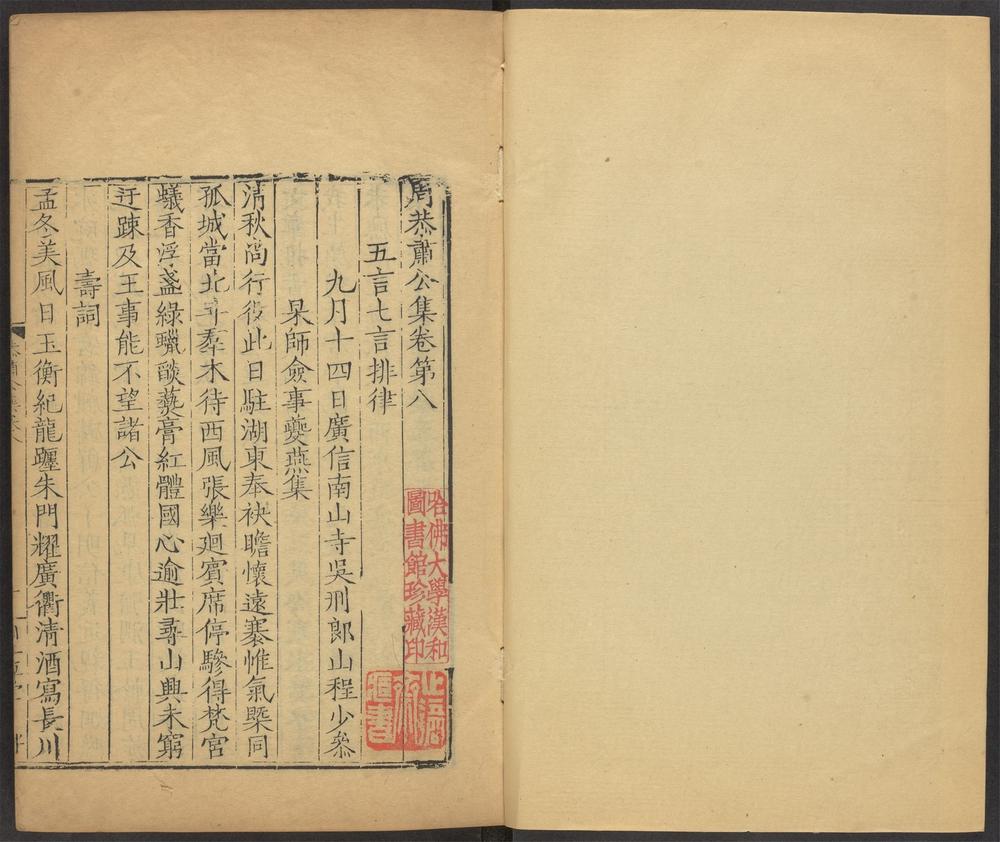 周恭肅公集卷第八
五言七言排律
九月十四日廣信南山寺吳刑郎山程少叅
杲師僉事夔燕集
清秋尚行役此日駐湖東奉袂瞻懷遠褰惟氣槩同
孤城當北斗羣木待西風張樂廻賓席停驂得梵宮
蟻香浮盞綠蠟燄爇膏紅體國心逾壯尋山興未窮
迂踈及王事能不望諸公
壽詞
孟冬美風日玉衡紀龍躔朱門耀廣衢清酒寫長川
哈佛大學漢和
圖書館珍藏印